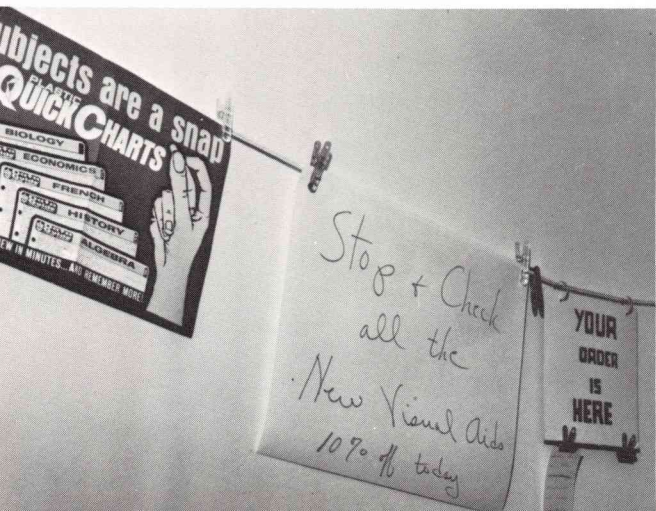 ubjects are a snap
PLASTIC
QUICK CHARTS
BIOLOGY
ECONOMICS
FRENCH
HISTORY
ALGEBRA
EW IN MINUTES...AND REMEMBER MORE!
Stop + Check
all the
New Visual Aids
10% off today
YOUR
ORDER
IS
HERE